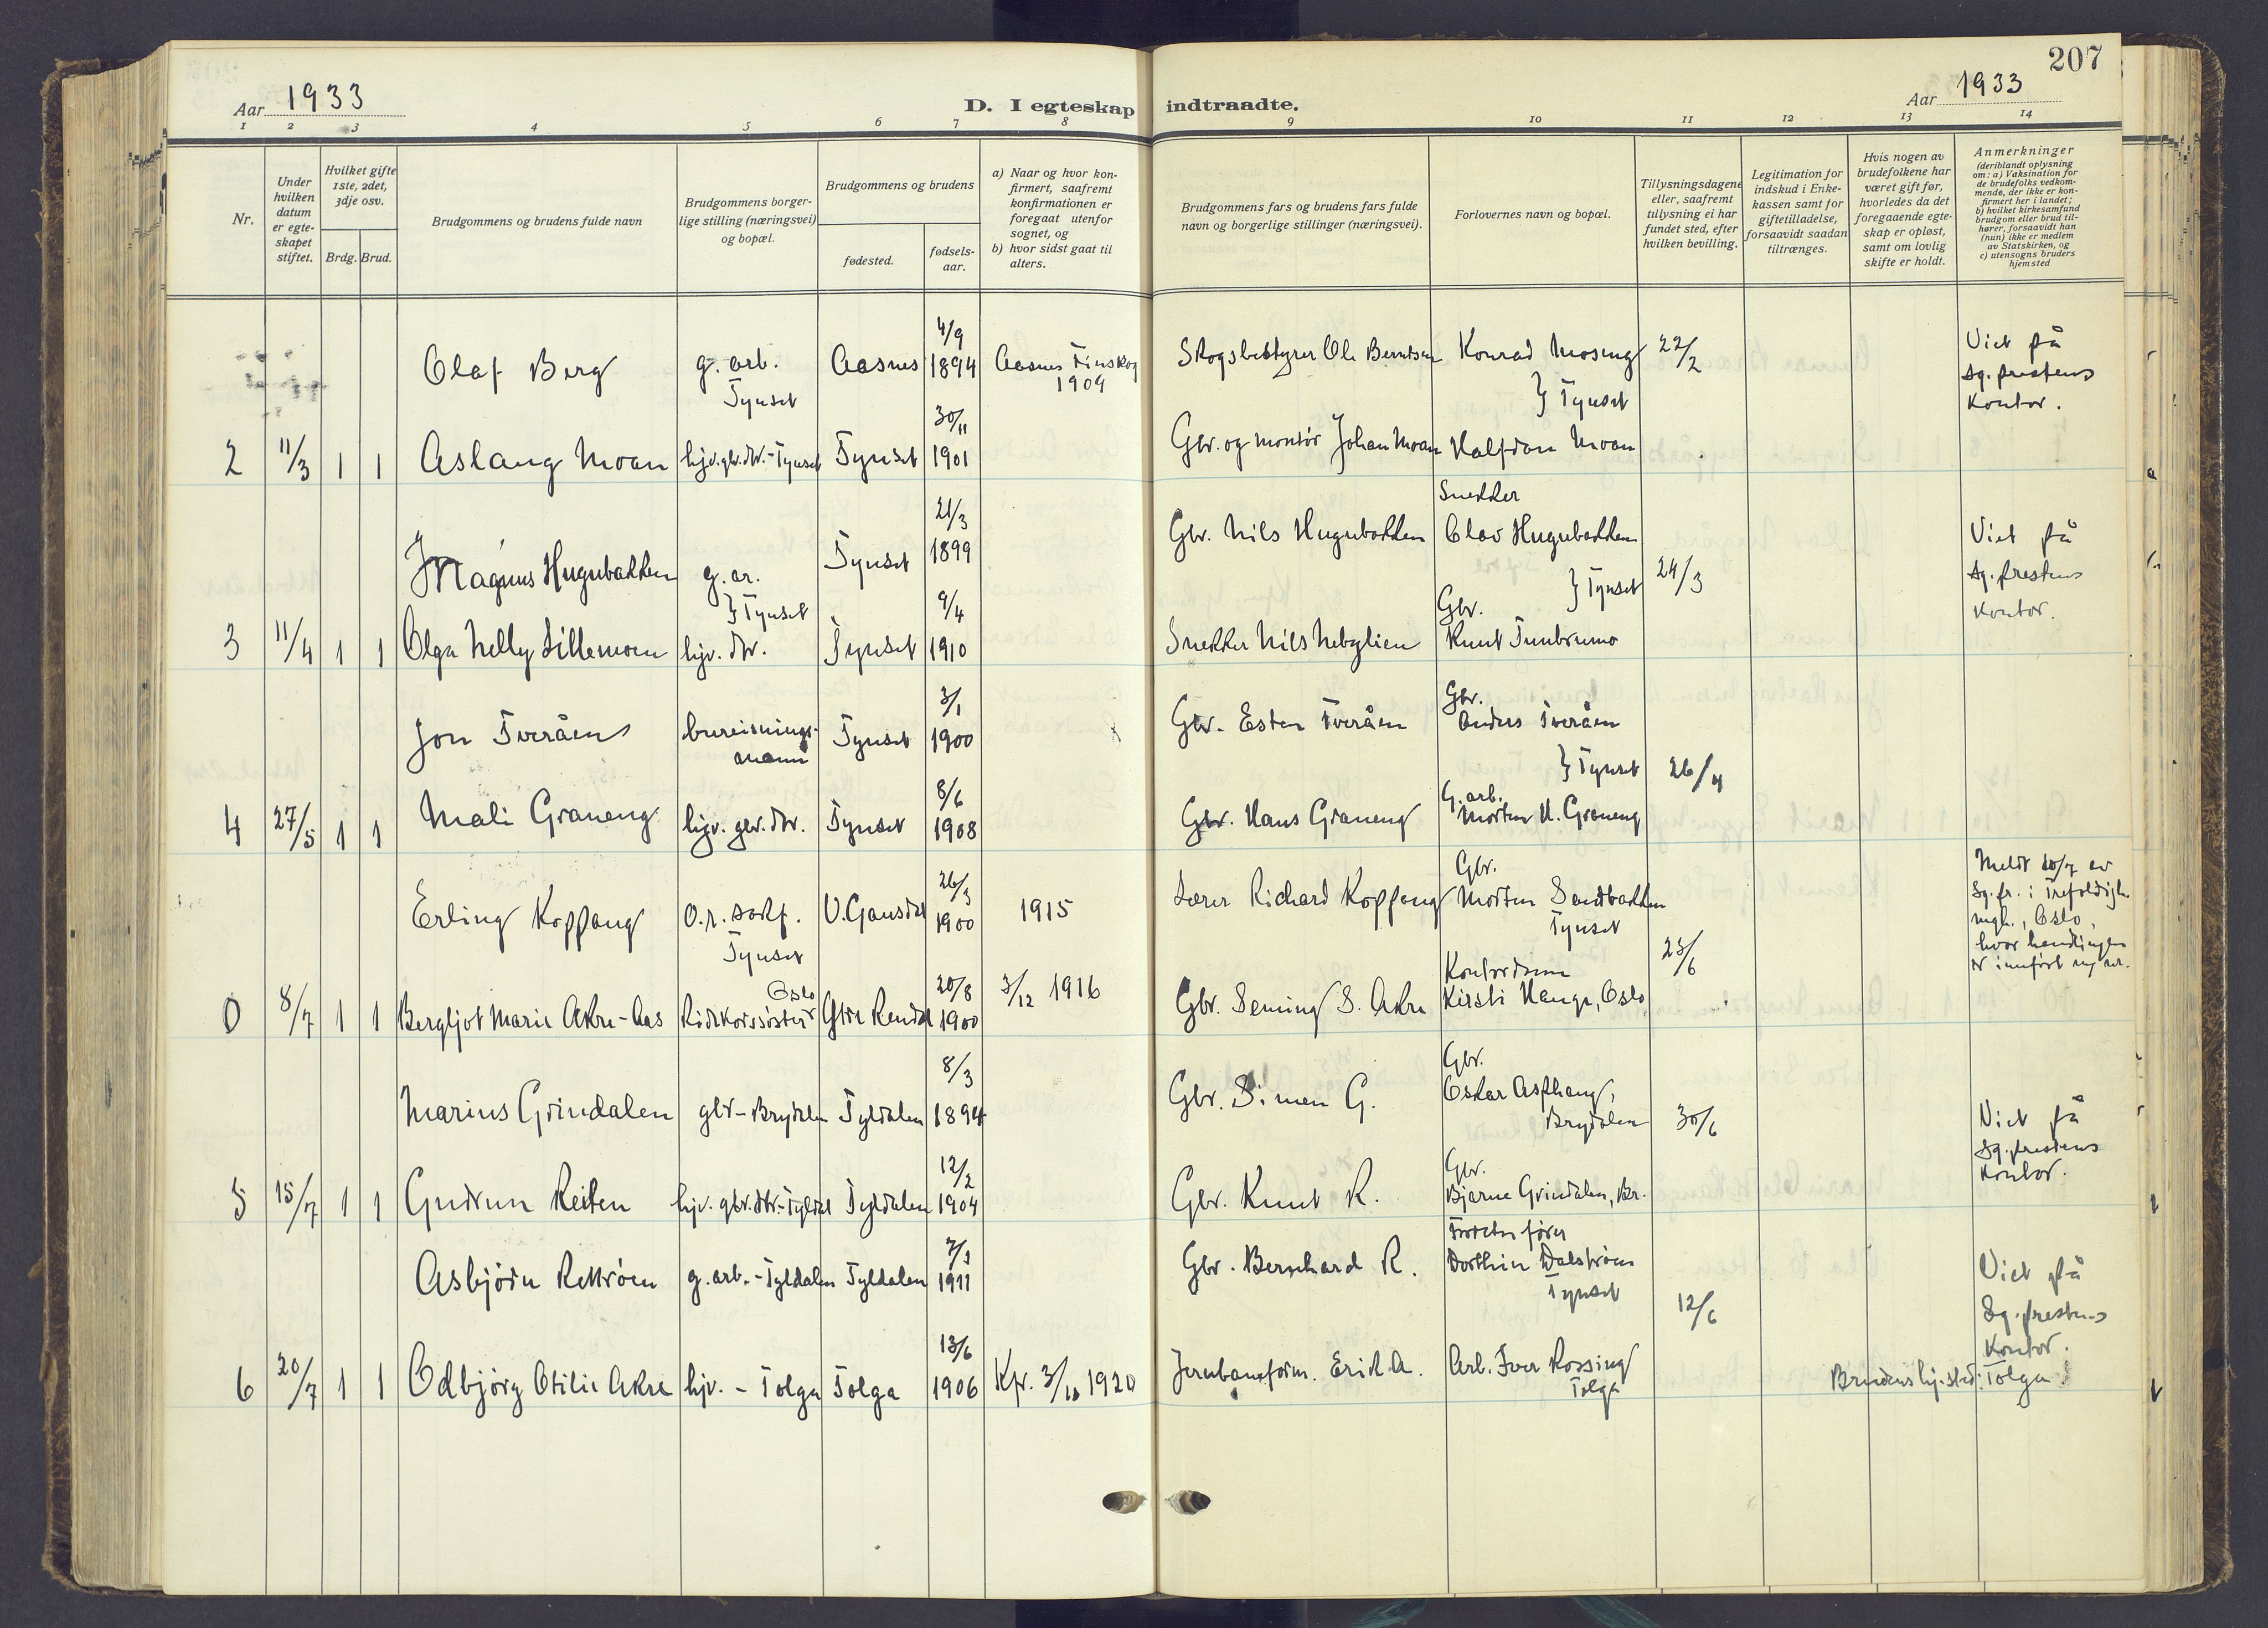 207
Aar 1933
D. I egteskap indtraadte.
Aar 1933
1 2 3 4 5 6 7 8 9 10 11 12 13 14
Nr.
Under hvilken datum er egte-skapet stiftet.
Hvilket gifte 1ste, 2det, 3dje osv.
Brdg. Brud.
Brudgommens og brudens fulde navn
Brudgommens borger-
lige stilling (næringsvei)
og bopæl.
Brudgommens og brudens
fødested.
fødsels-
aar.
a) Naar og hvor kon-
firmert, saafremt
konfirmationen er
foregaat utenfor
sognet, og
b) hvor sidst gaat til
alters.
Brudgommens fars og brudens fars fulde
navn og borgerlige stillinger (næringsvei).
Forlovernes navn og bopæl.
Tillysningsdagene
eller, saafremt
tillysning ei har
fundet sted, efter
hvilken bevilling.
Legitimation for
indskud i Enke-
kassen samt for
giftetilladelse,
forsaavidt saadan
tiltrænges.
Hvis nogen av
brudefolkene har
været gift før,
hvorledes da det
foregaaende egte-
skap er opløst,
samt om lovlig
skifte er holdt.
Anmerkninger
(deriblandt oplysning
om: a) Vaksination for
de brudefolks vedkom-
mende, der ikke er kon-
firmert her i landet;
b) hvilket kirkesamfund
brudgom eller brud til-
hører, forsaavidt han
(hun) ikke er medlem
av Statskirken, og
c) utensogns bruders
hjemsted
Olaf Berg g. arb. Tynset Aasnes 4/9 1894 Aasnes Finskog 1909 Skogsbestyrer Ole Berntsen Konrad Mosing } Tynset 22/2 Viet på sg.prestens kontor.
2 11/3 1 1 Aslaug Moan hjv. gbr. dtr. - Tynset Tynset 30/11 1901 Gbr. og montør Johan Moan Halfdan Moan
Magnus Hugubakken g. ar. } Tynset Tynset 21/3 1899 Gbr. Nils Hugubakken Snekker Olav Hugubakken } Tynset 24/3 Viet på sg.prestens kontor.
3 11/4 1 1 Olga Nelly Lillemoen hjv. dtr. Tynset 9/4 1910 Snekker Nils Nebylien Gbr. Knut Tunbrumo
Jon Tveråen bureisnings-mann Tynset 3/1 1900 Gbr. Esten Tveråen Gbr. Anders Tveråen } Tynset 26/4
4 27/5 1 1 Mali Graneng hjv. gbr. dtr. Tynset 8/6 1908 Gbr. Hans Graneng G. arb. Morten H. Graneng
Erling Koppang O.r. sakf. Tynset V. Gausdal 26/3 1900 1915 Lærer Richard Koppang Gbr. Morten Sandbakken Tynset 25/6 Meldt 10/7 av sg.pr. i Trefoldigh. mgh., Oslo, hvor handlingen er innført
0 8/7 1 1 Bergljot Marie Akre-Aas Oslo Rødekorssøster Øvre Rendal 20/8 1900 3/12 1916 Gbr. Seming S. Akre Kontordame Kirsti Hauge, Oslo
Marius Grindalen gbr - Brydalen Tyldalen 8/3 1894 Gbr. Simen G. Gbr. Oskar Asphaug, Brydalen 30/6 Viet på sg.prestens kontor.
5 15/7 1 1 Gudrun Reiten hjv. gbr. dtr. - Tyldal Tyldalen 12/2 1904 Gbr. Knut R. Gbr. Bjarne Grindalen, Br.
Asbjørn Rettrøen g. arb. - Tyldalen Tyldalen 7/3 1911 Gbr. Bernhard R. Dorthin Dalstrøm Tynset 12/6 Viet på sg.prestens kontor.
6 20/7 1 1 Odbjørg Otilie Akre hjv. - Tolga Tolga 13/6 1906 Kfr. 3/10 1920 Jernbaneform. Erik A. Arb. Iver Rossing Tolga Brudens hj.sted: Tolga.